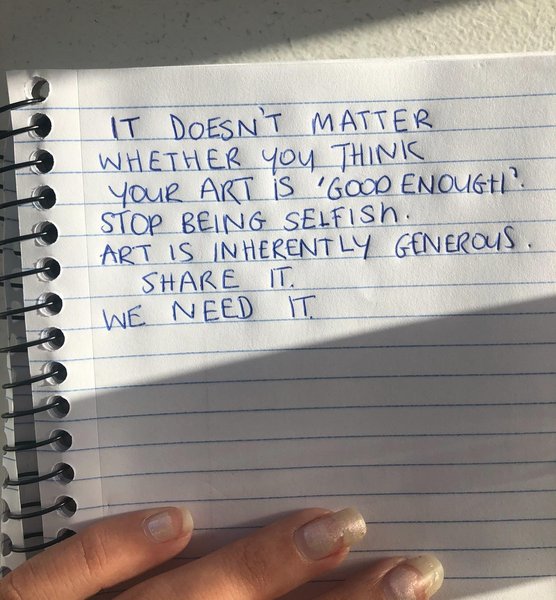 IT DOESN'T MATTER
WHETHER YOU THINK
YOUR ART IS 'GOOD ENOUGH'.
STOP BEING SELFISH.
ART IS INHERENTLY GENEROUS.
SHARE IT.
WE NEED IT.